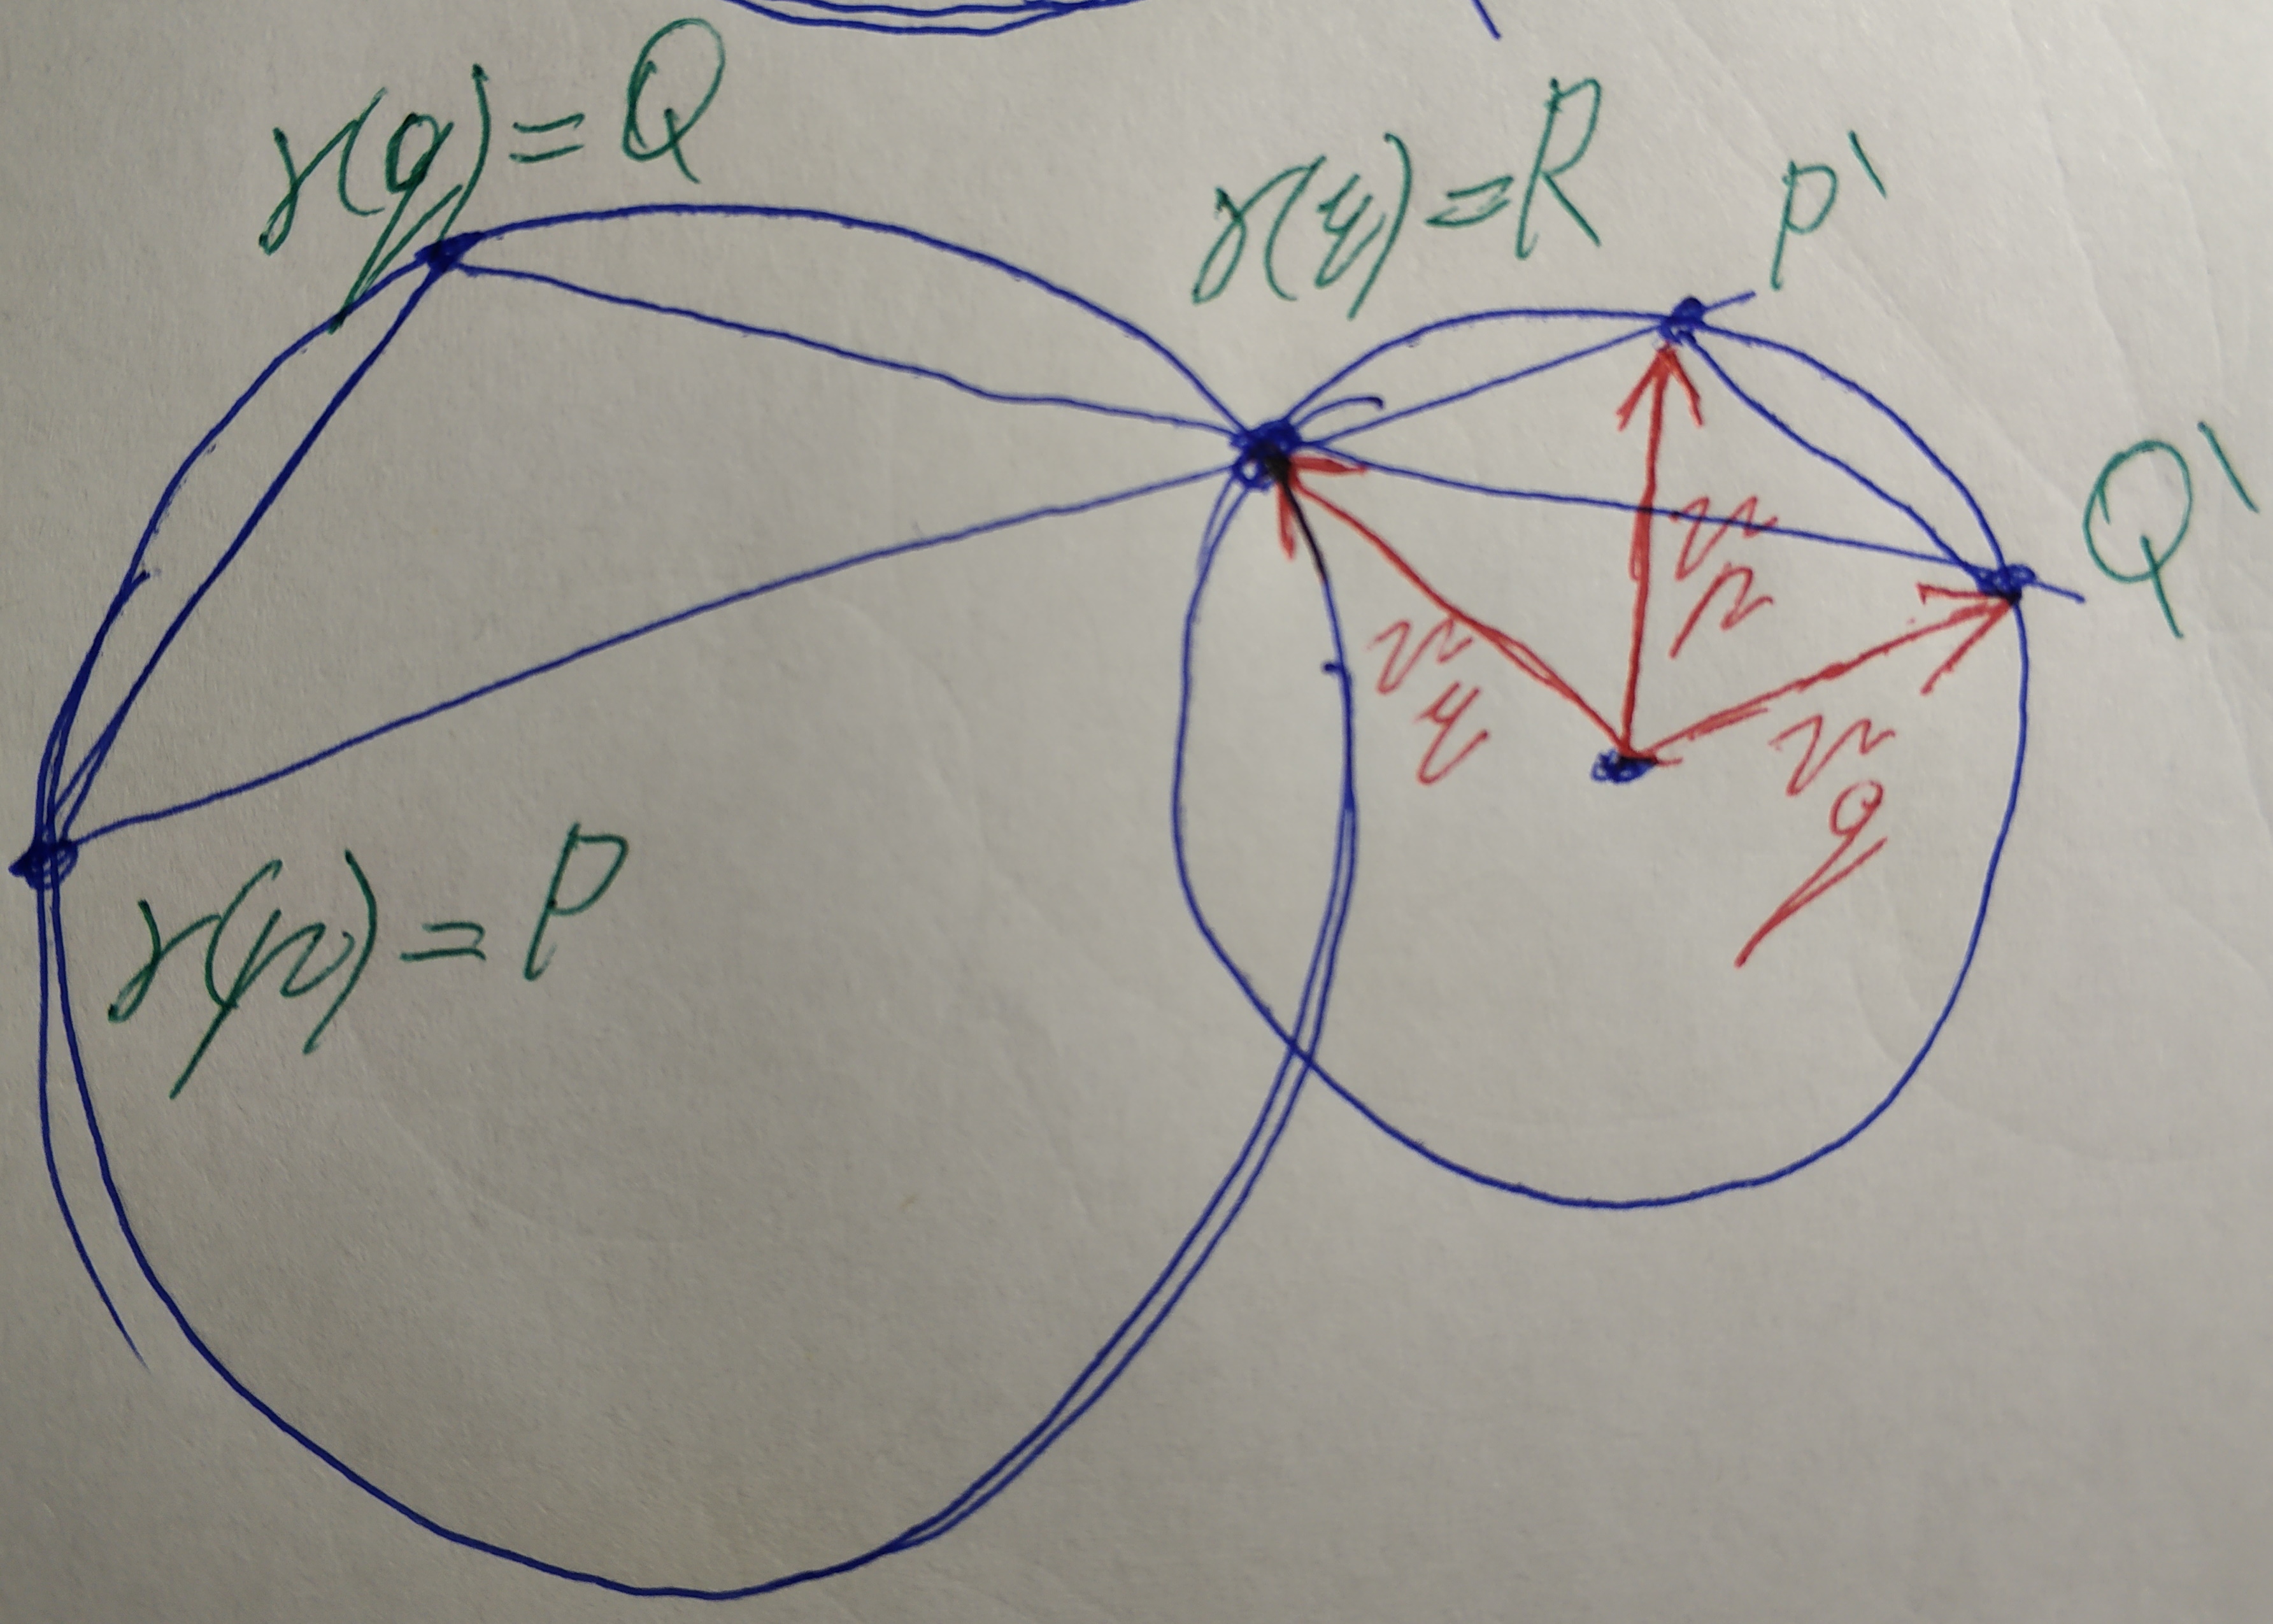 γ(q) = Q
γ(r) = R
P'
Q'
v_p
v_r
v_q
γ(p) = P